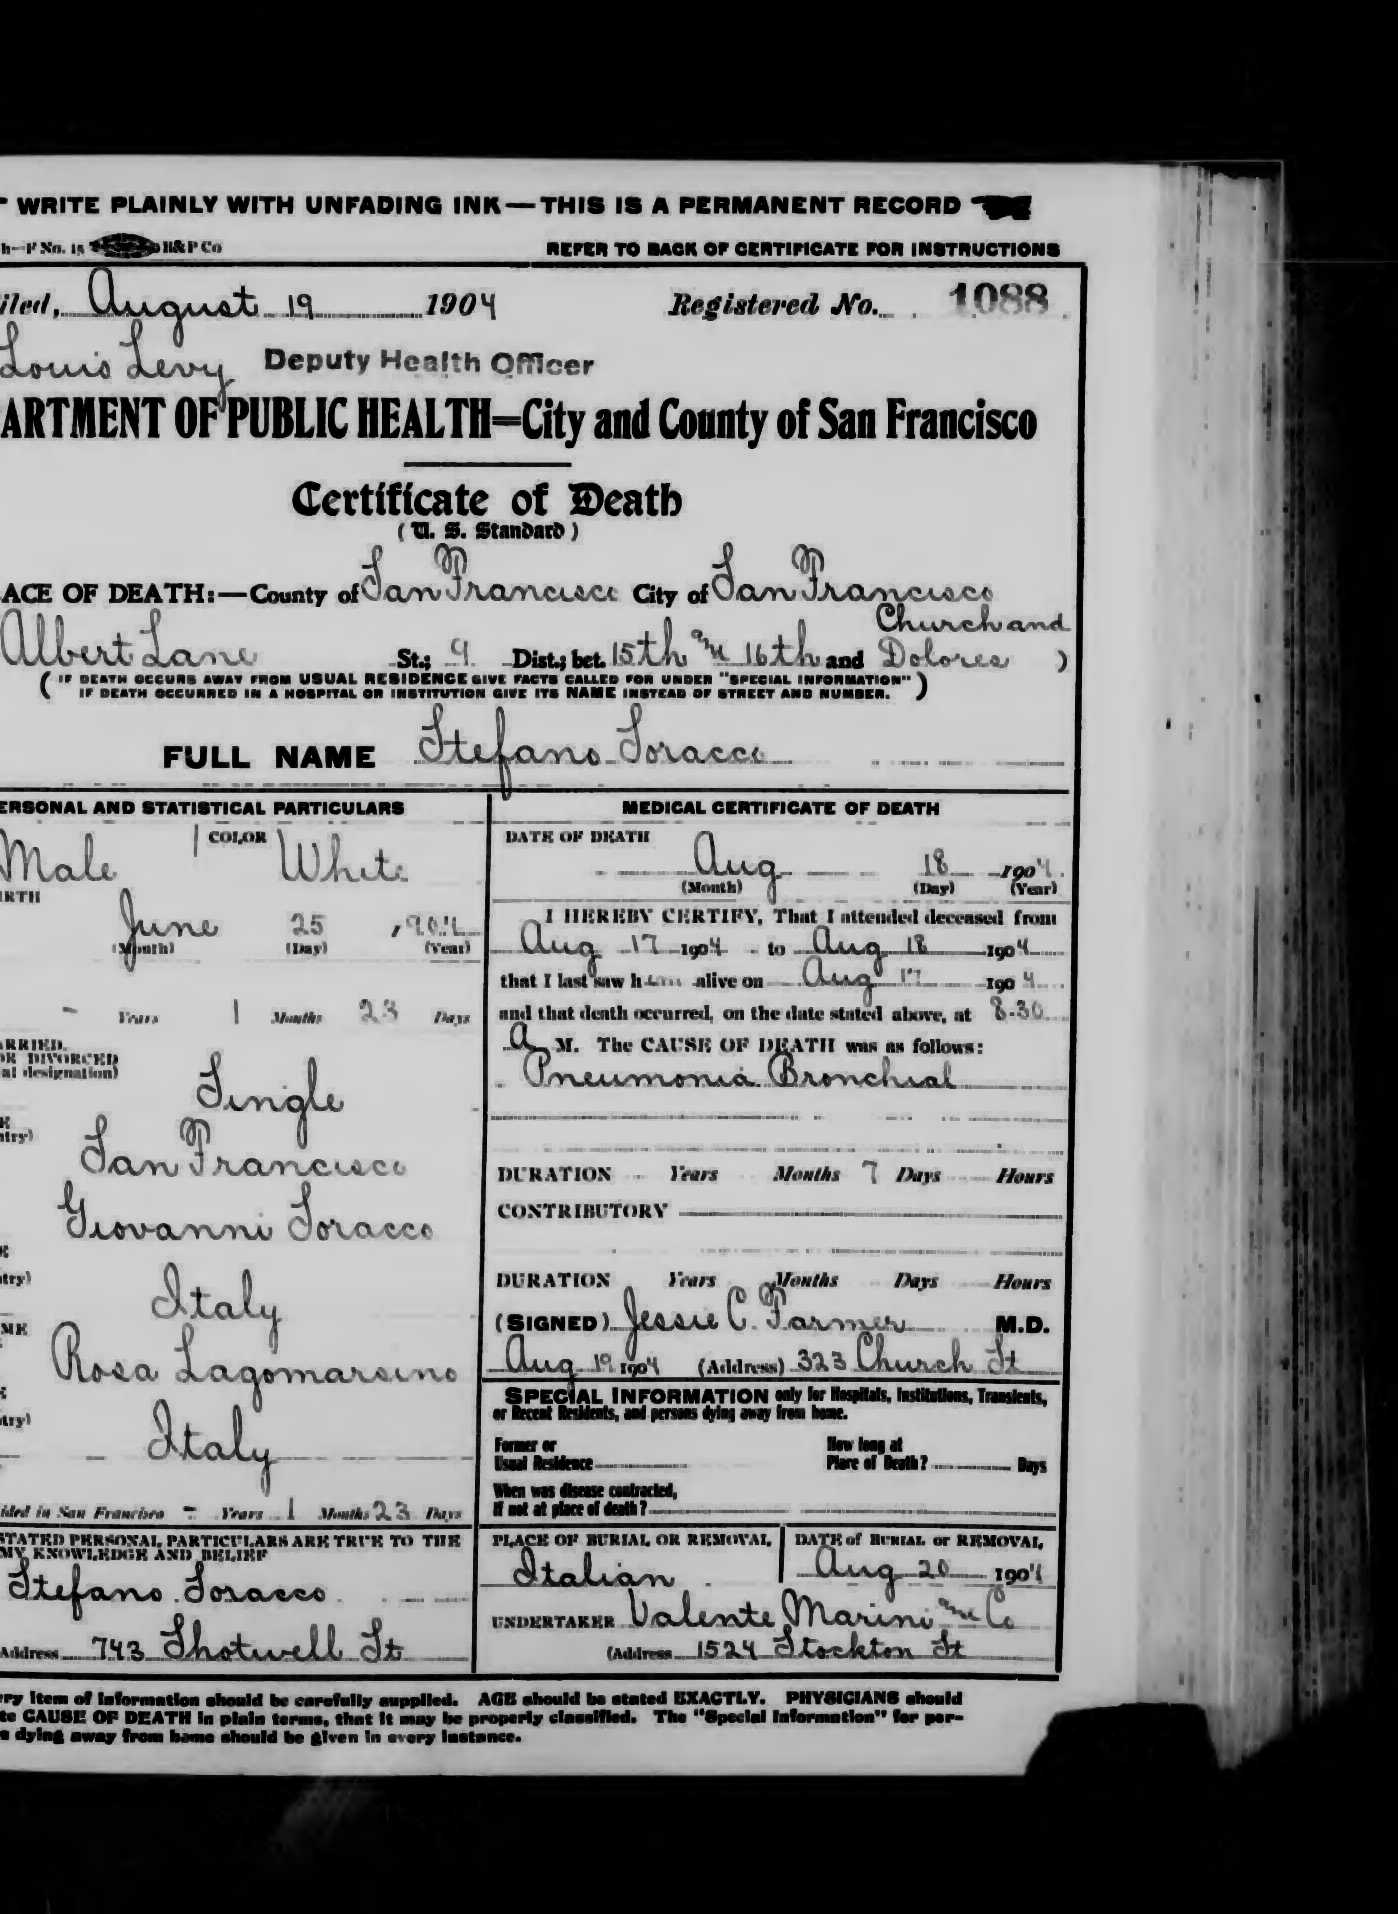 WRITE PLAINLY WITH UNFADING INK—THIS IS A PERMANENT RECORD
h—F No. 15 H&P Co REFER TO BACK OF CERTIFICATE FOR INSTRUCTIONS
iled, August 19 1904 Registered No. 1088
Louis Levy Deputy Health Officer
ARTMENT OF PUBLIC HEALTH—City and County of San Francisco
Certificate of Death
(U. S. Standard)
ACE OF DEATH:—County of San Francisco City of San Francisco
Church and
Albert Lane St.; 9 Dist.; bet. 15th and 16th and Dolores )
( IF DEATH OCCURS AWAY FROM USUAL RESIDENCE GIVE FACTS CALLED FOR UNDER "SPECIAL INFORMATION" )
IF DEATH OCCURRED IN A HOSPITAL OR INSTITUTION GIVE ITS NAME INSTEAD OF STREET AND NUMBER.
FULL NAME Stefano Soracco
ERSONAL AND STATISTICAL PARTICULARS
Male COLOR White
IRTH
June 25 , 1904
(Month) (Day) (Year)
- Years 1 Months 23 Days
ARRIED,
OR DIVORCED
al designation)
Single
E
ntry)
San Francisco
Giovanni Soracco
E
ntry)
Italy
ME
Rosa Lagomarsino
E
ntry)
Italy
ided in San Francisco - Years 1 Months 23 Days
STATED PERSONAL PARTICULARS ARE TRUE TO THE
MY KNOWLEDGE AND BELIEF
Stefano Soracco
Address 743 Shotwell St
MEDICAL CERTIFICATE OF DEATH
DATE OF DEATH
Aug 18 1904
(Month) (Day) (Year)
I HEREBY CERTIFY, That I attended deceased from
Aug 17 1904 to Aug 18 1904
that I last saw him alive on Aug 17 1904
and that death occurred, on the date stated above, at 8-30
A M. The CAUSE OF DEATH was as follows:
Pneumonia Bronchial
DURATION Years Months 7 Days Hours
CONTRIBUTORY
DURATION Years Months Days Hours
(SIGNED) Jessie C. Farmer M.D.
Aug 19 1904 (Address) 323 Church St
SPECIAL INFORMATION only for Hospitals, Institutions, Transients,
or Recent Residents, and persons dying away from home.
Former or How long at
Usual Residence Place of Death? Days
When was disease contracted,
If not at place of death?
PLACE OF BURIAL OR REMOVAL DATE of BURIAL or REMOVAL
Italian Aug 20 1904
UNDERTAKER Valente Marini and Co
(Address 1524 Stockton St
ry item of information should be carefully supplied. AGE should be stated EXACTLY. PHYSICIANS should
te CAUSE OF DEATH in plain terms, that it may be properly classified. The "Special Information" for per-
s dying away from home should be given in every instance.